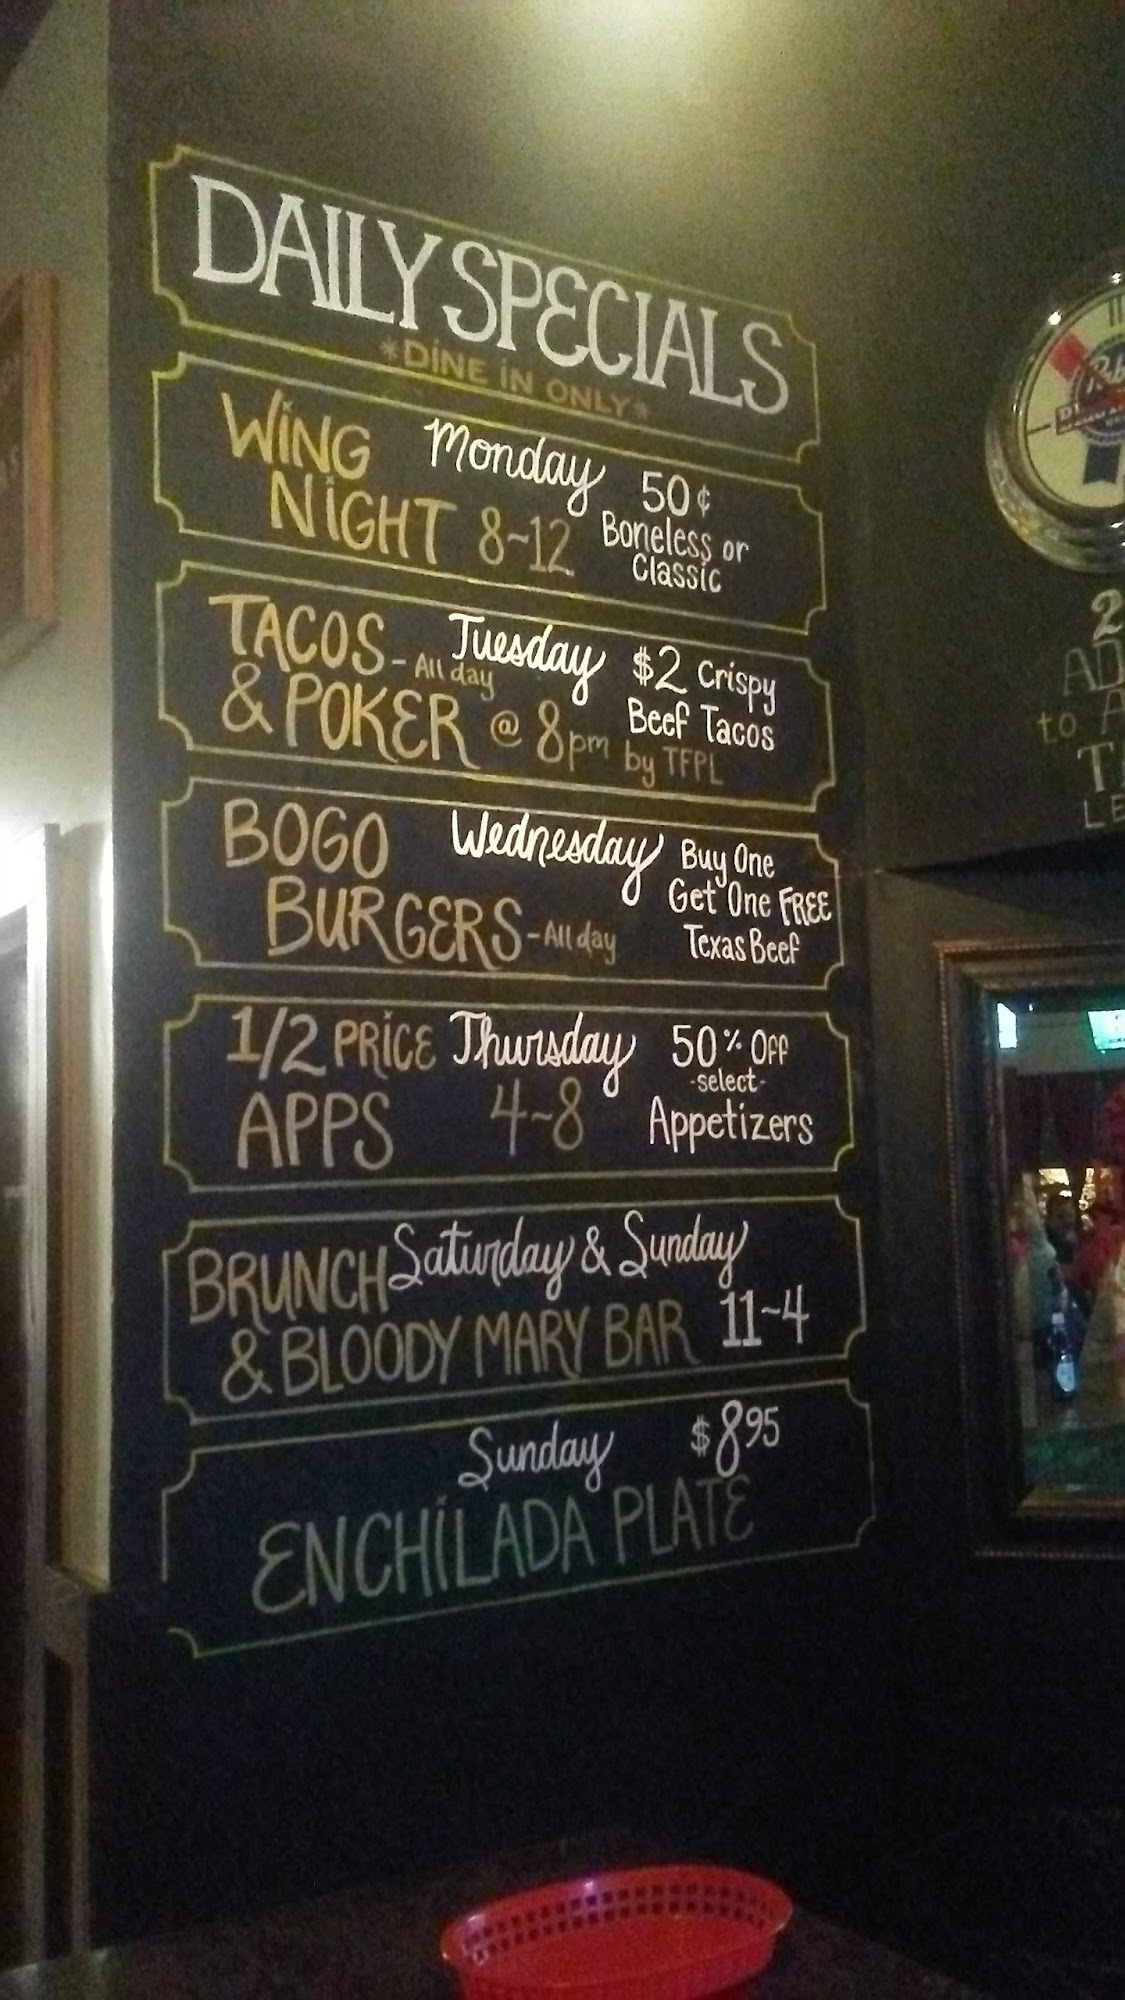 DAILY SPECIALS
*DINE IN ONLY*
WING Monday 50¢
NIGHT 8~12 Boneless or
Classic
TACOS - All day Tuesday $2 Crispy
Beef Tacos
& POKER @ 8pm by TFPL
BOGO Wednesday Buy One
Get One FREE
BURGERS - All day Texas Beef
1/2 PRICE Thursday 50% Off
-select-
APPS 4~8 Appetizers
BRUNCH Saturday & Sunday
& BLOODY MARY BAR 11~4
Sunday $8.95
ENCHILADA PLATE
2
to